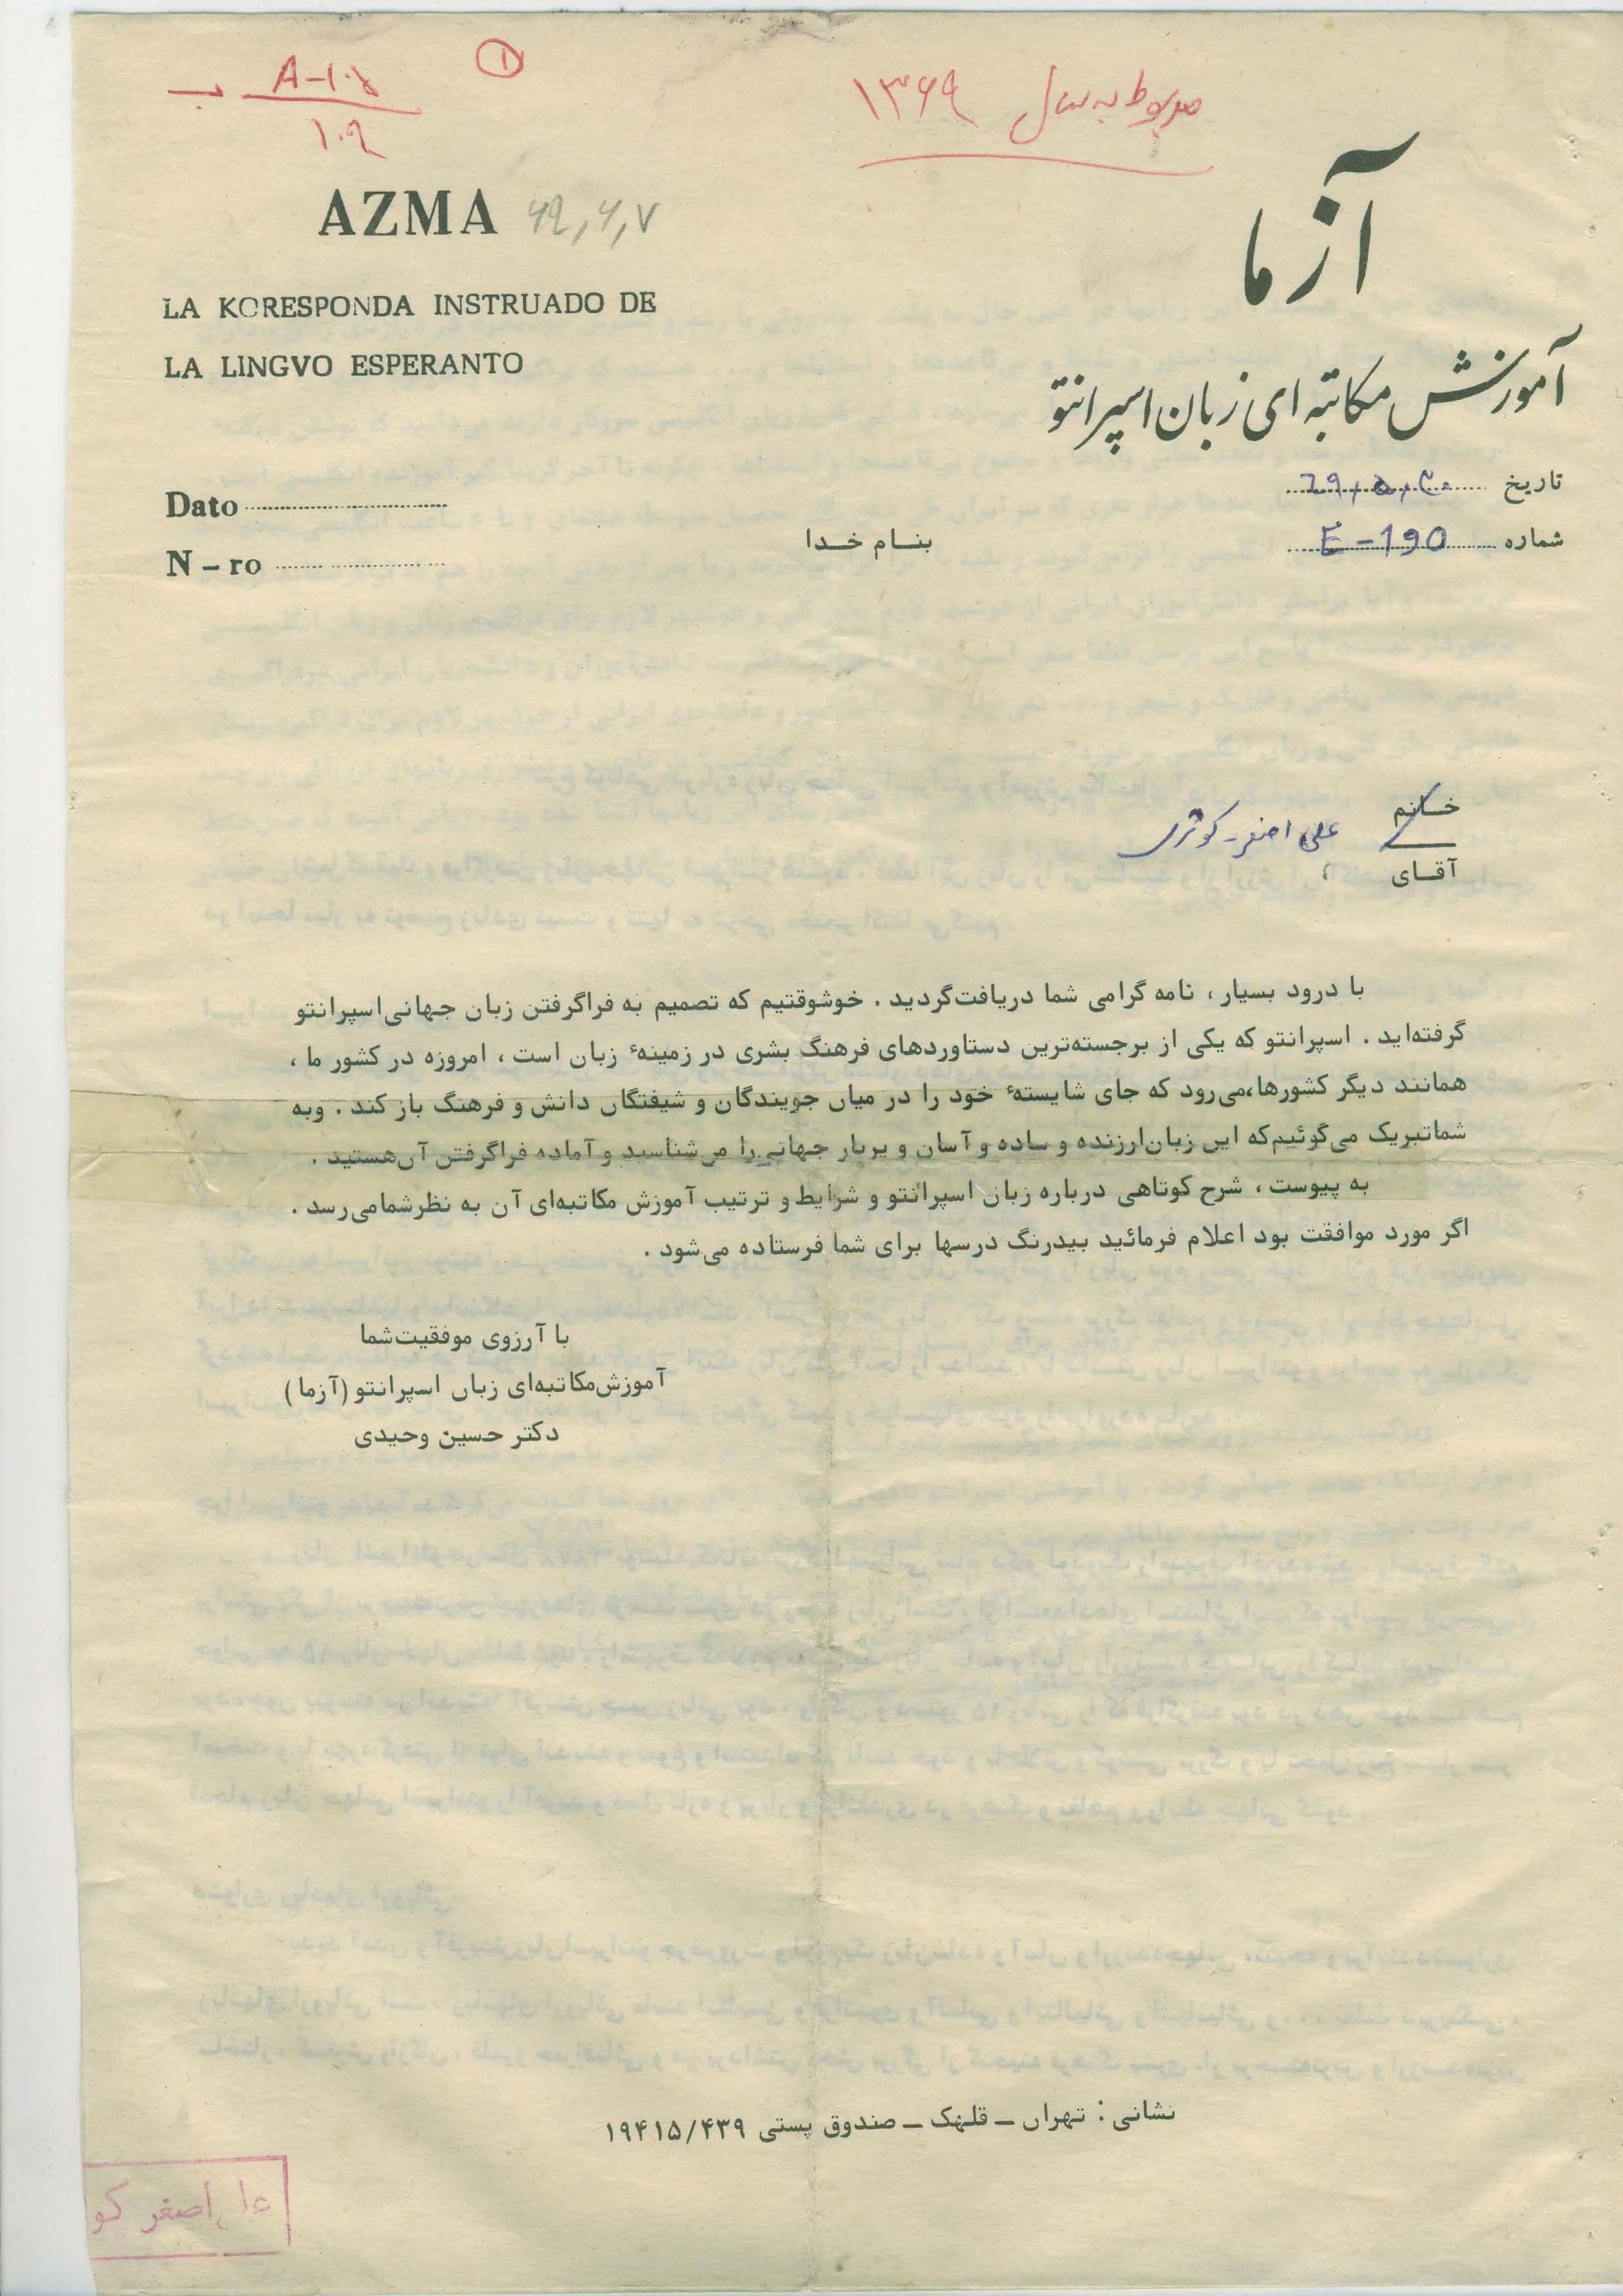 مربوط به سال ۱۳۶۹
۱
A-۱۰۸
۱۰۹
AZMA ۶۹,۶,۷
آزما
LA KORESPONDA INSTRUADO DE
LA LINGVO ESPERANTO
آموزش مکاتبه ای زبان اسپرانتو
Dato
تاریخ ۶۹,۵,۳۰
N - ro
شماره E-190
بنـام خـدا
خـانم
علی اصغر کوثری
آقـای
با درود بسیار ، نامه گرامی شما دریافت‌گردید . خوشوقتیم که تصمیم به فراگرفتن زبان جهانی‌اسپرانتو
گرفته‌اید . اسپرانتو که یکی از برجسته‌ترین دستاوردهای فرهنگ بشری در زمینهٔ زبان است ، امروزه در کشور ما ،
همانند دیگر کشورها،می‌رود که جای شایستهٔ خود را در میان جویندگان و شیفتگان دانش و فرهنگ باز کند . وبه
شماتبریک می‌گوئیم‌که این زبان‌ارزنده و ساده و آسان و پربار جهانی‌را می‌شناسید و آماده فراگرفتن آن‌هستید .
به پیوست ، شرح کوتاهی درباره زبان اسپرانتو و شرایط و ترتیب آموزش مکاتبه‌ای آن به نظرشمامی‌رسد .
اگر مورد موافقت بود اعلام فرمائید بیدرنگ درسها برای شما فرستاده می‌شود .
با آرزوی موفقیت‌شما
آموزش‌مکاتبه‌ای زبان اسپرانتو (آزما)
دکتر حسین وحیدی
نشانی : تهران ـ قلهک ـ صندوق پستی ۱۹۴۱۵/۴۳۹
علی اصغر کو